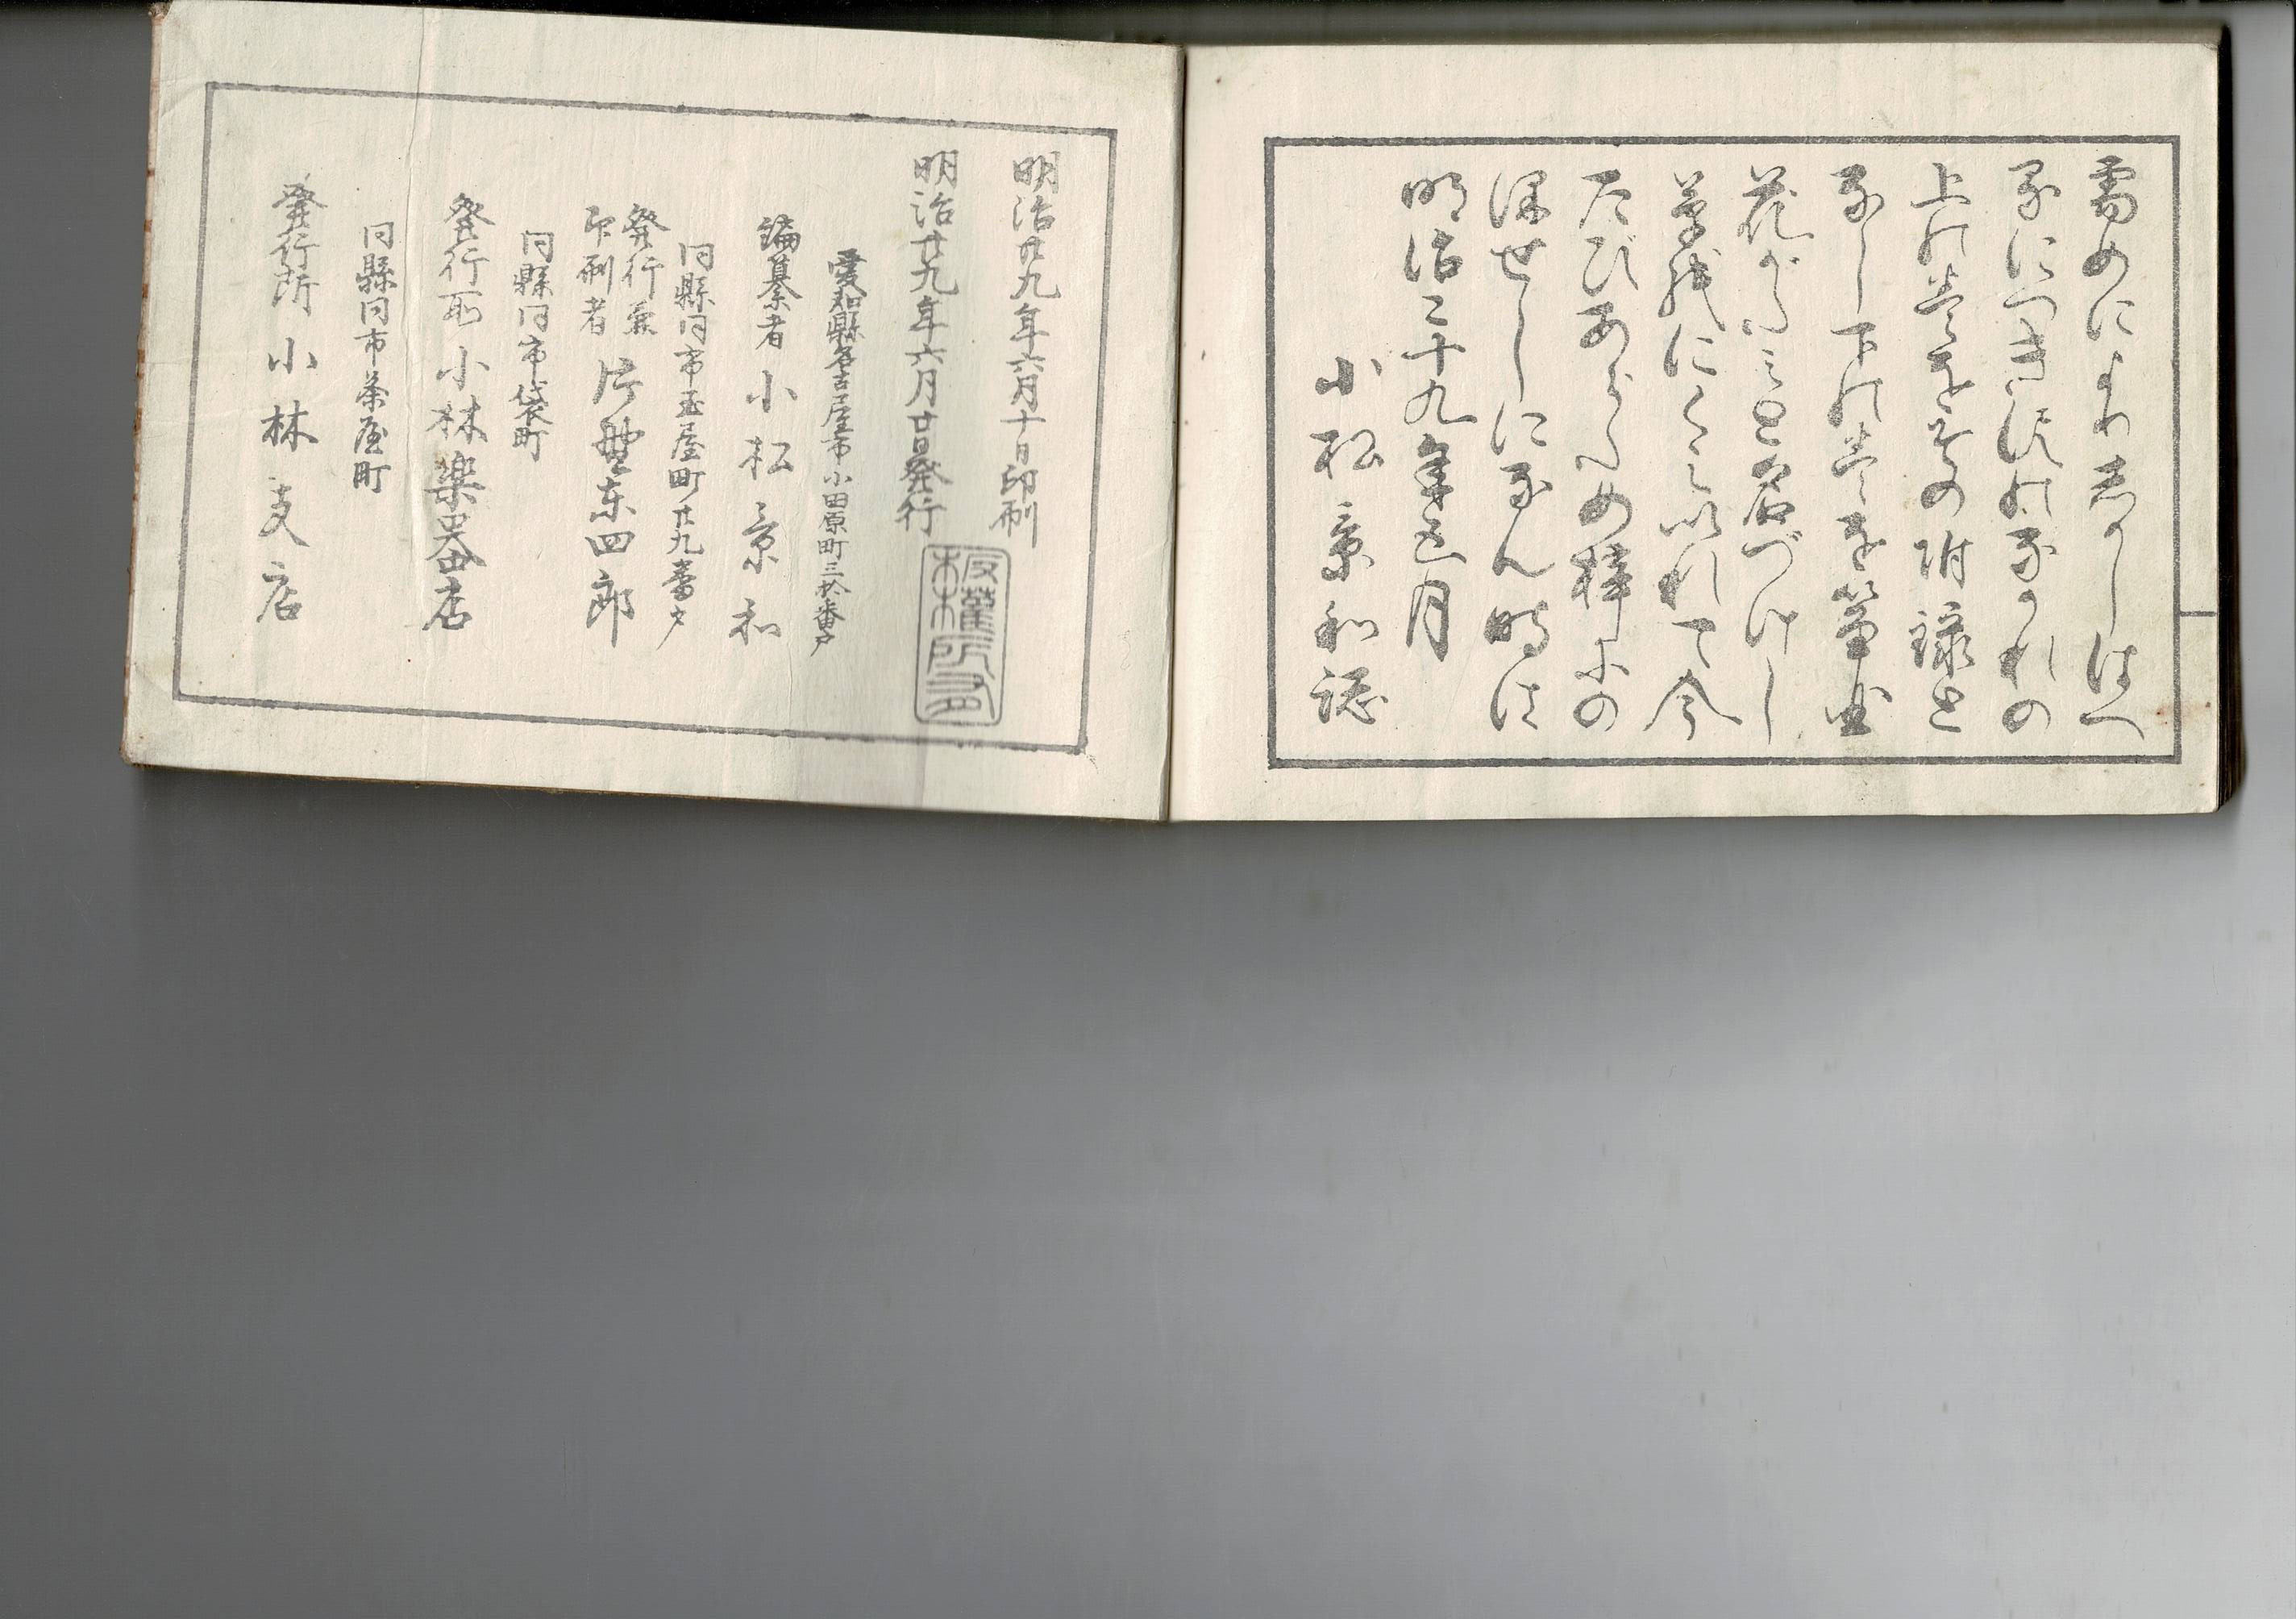 需めにより志かしはへ
上の巻をその附録と
なし下の巻を箏曲
花がたみと名づけし
たびあらため梓にの
保せしになん時は
明治二十九年五月
小松景和誌
明治廿九年六月十日印刷
明治廿九年六月廿日発行
版權所有
愛知縣名古屋市小田原町三拾番戸
編纂者 小松景和
同縣同市玉屋町廿九番戸
発行兼
印刷者 片野东四郎
同縣同市袋町
発行所 小林楽器店
同縣同市茶屋町
発行所 小林支店